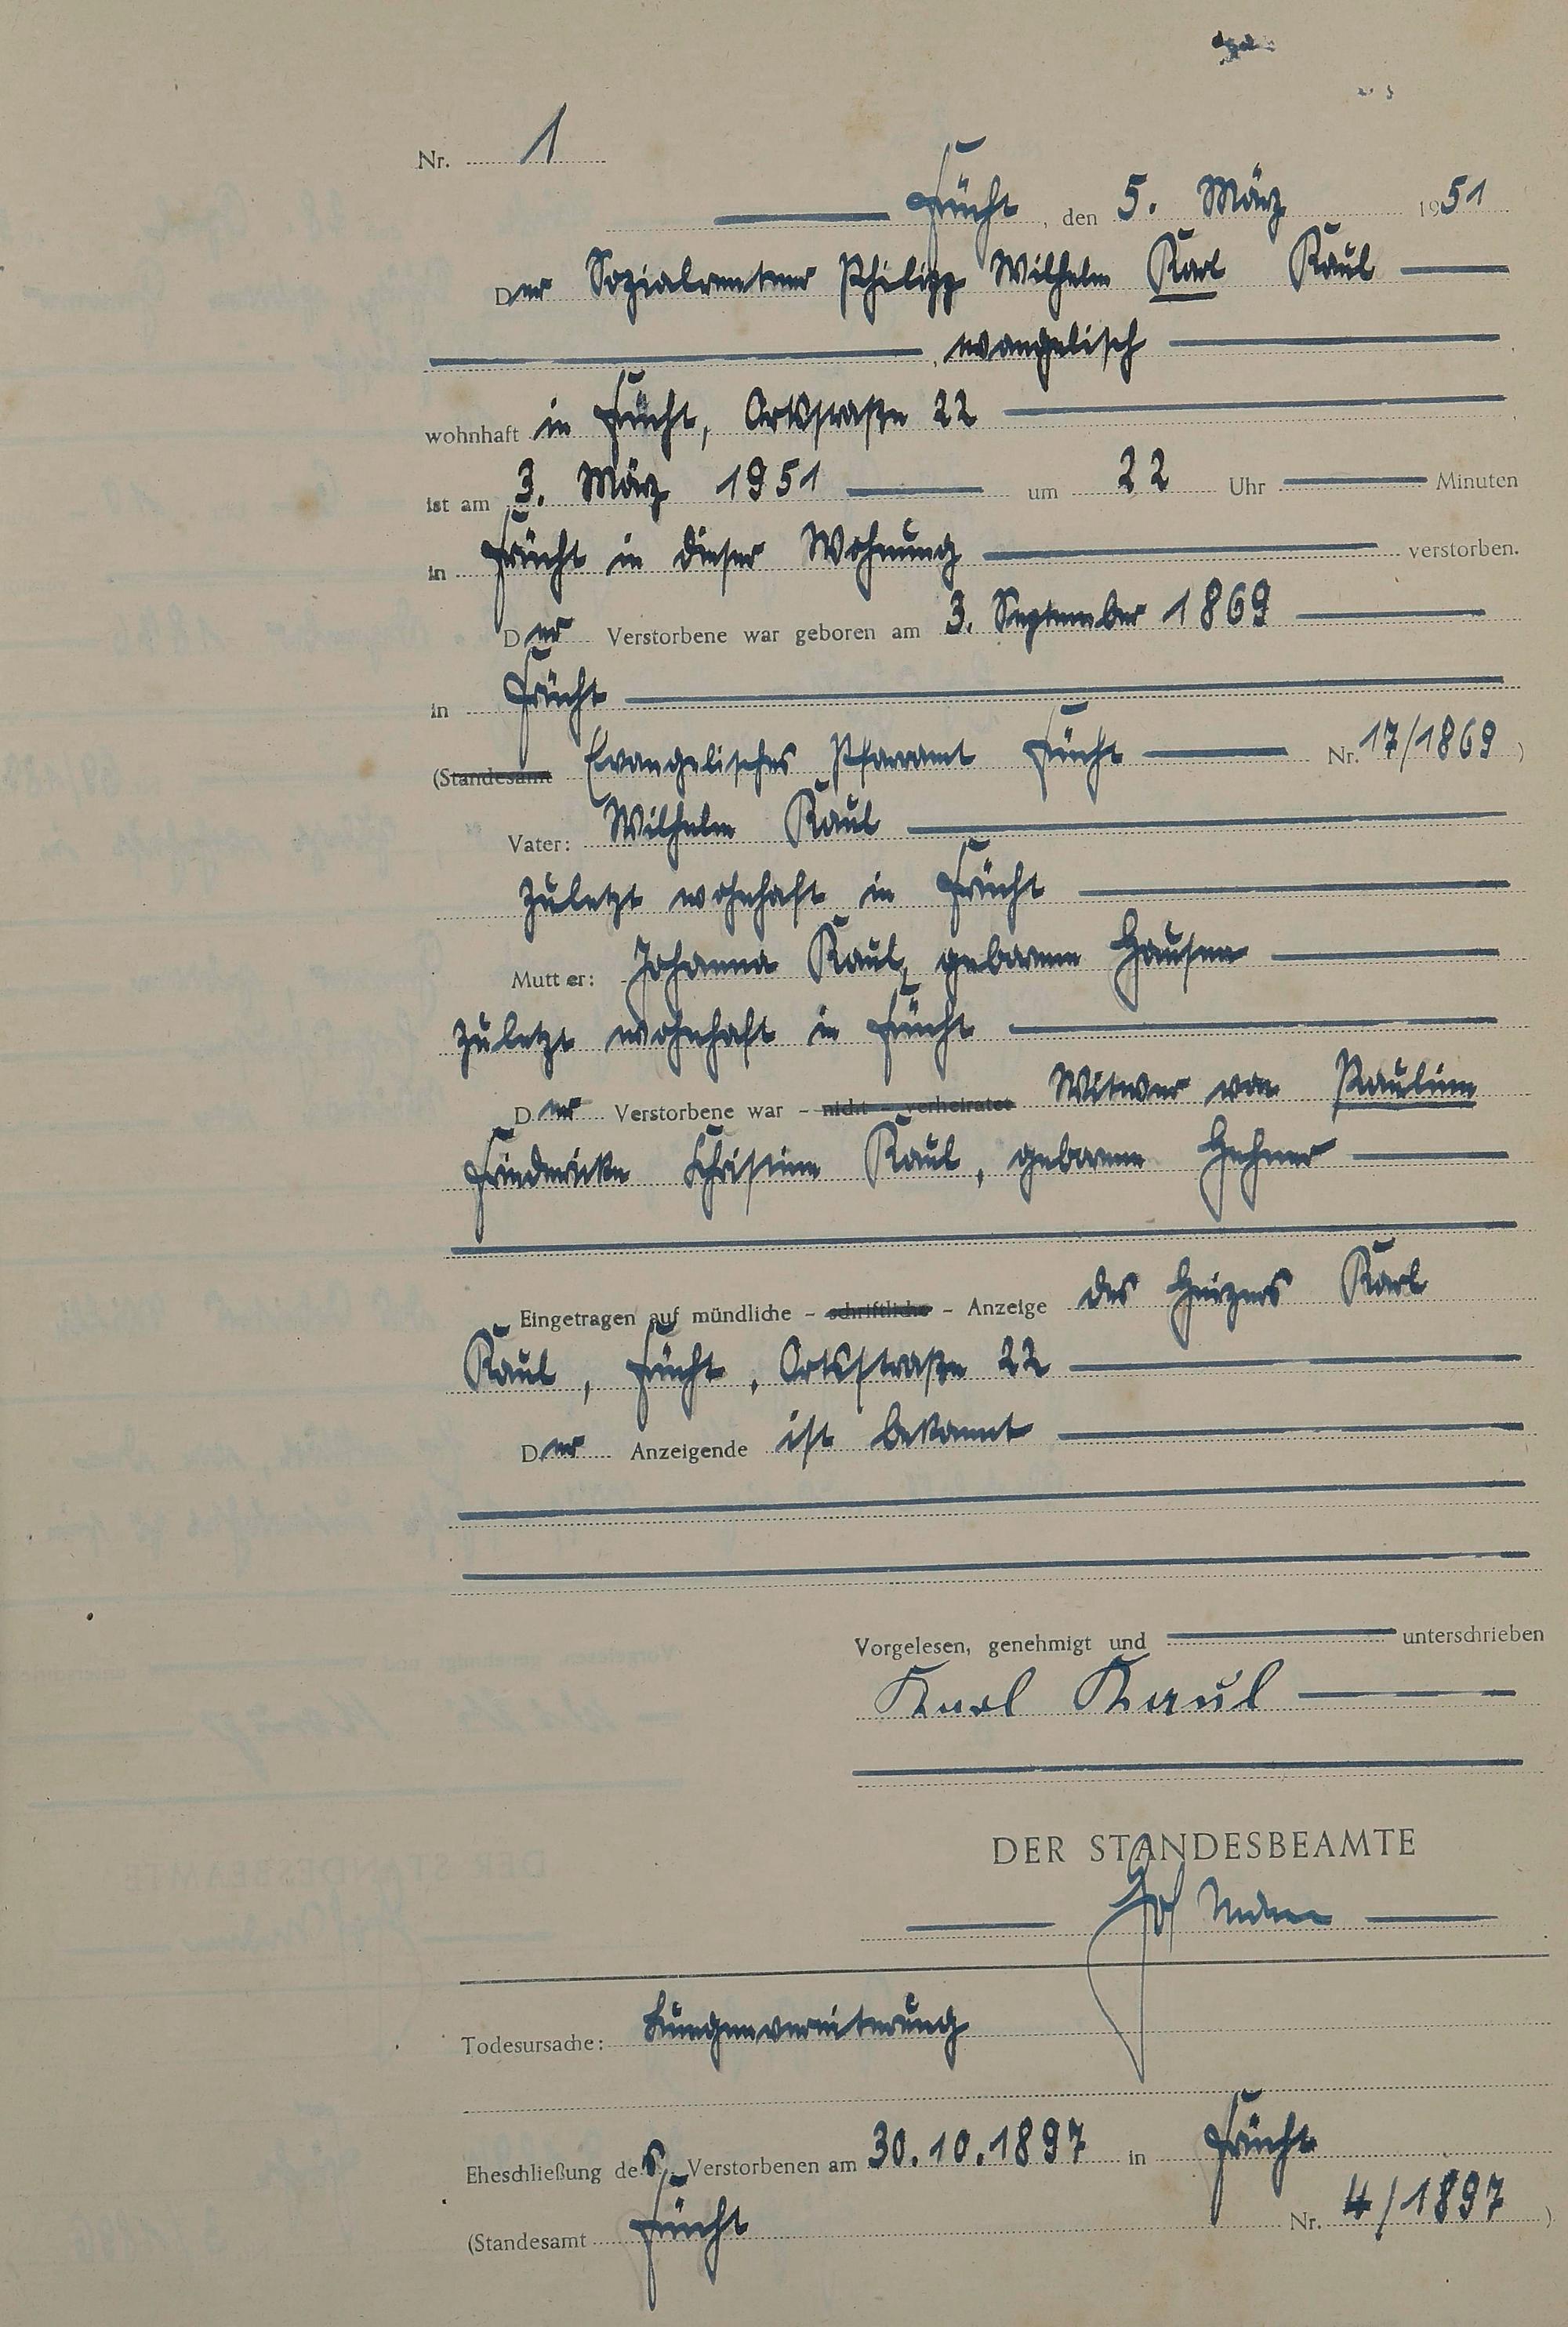 Nr. 1
Frücht, den 5. März 1951
Der Sozialrentner Philipp Wilhelm Karl Kaul
, evangelisch
wohnhaft in Frücht, Ortsstraße 22
ist am 3. März 1951 um 22 Uhr Minuten
in Frücht in dieser Wohnung verstorben.
Der Verstorbene war geboren am 3. September 1869
in Frücht
(Standesamt Evangelisches Pfarramt Frücht Nr. 17/1869)
Vater: Wilhelm Kaul
zuletzt wohnhaft in Frücht
Mutter: Johanna Kaul, geborene Hausen
zuletzt wohnhaft in Frücht
Der Verstorbene war - nicht - verheiratet Witwer von Pauline
Friedericke Christine Kaul, geborene Hehner
Eingetragen auf mündliche - schriftliche - Anzeige des Heizers Karl
Kaul, Frücht, Ortsstraße 22
Der Anzeigende ist bekannt
Vorgelesen, genehmigt und unterschrieben
Karl Kaul
DER STANDESBEAMTE
Todesursache: Lungenvereiterung
Eheschließung des Verstorbenen am 30.10.1897 in Frücht
(Standesamt Frücht Nr. 4/1897)